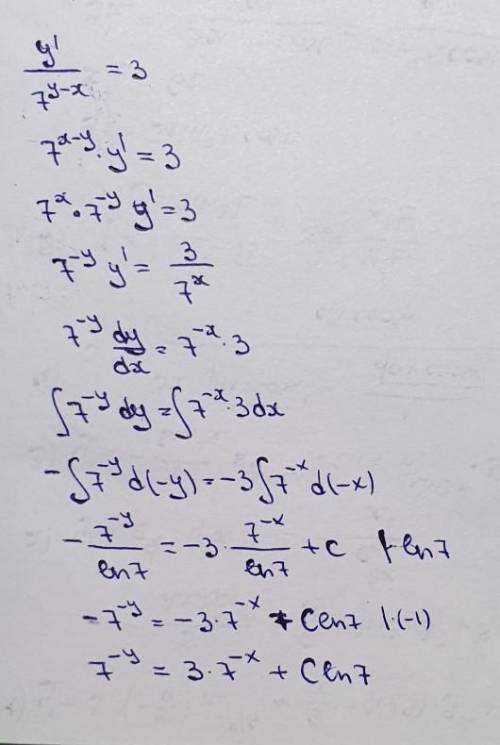 y' / 7^(y-x) = 3
7^(x-y) · y' = 3
7^x · 7^(-y) y' = 3
7^(-y) y' = 3 / 7^x
7^(-y) dy/dx = 7^(-x) · 3
∫ 7^(-y) dy = ∫ 7^(-x) · 3 dx
- ∫ 7^(-y) d(-y) = -3 ∫ 7^(-x) d(-x)
- 7^(-y) / ln7 = -3 · 7^(-x) / ln7 + C |· ln7
-7^(-y) = -3 · 7^(-x) + C ln7 |·(-1)
7^(-y) = 3 · 7^(-x) + C ln7